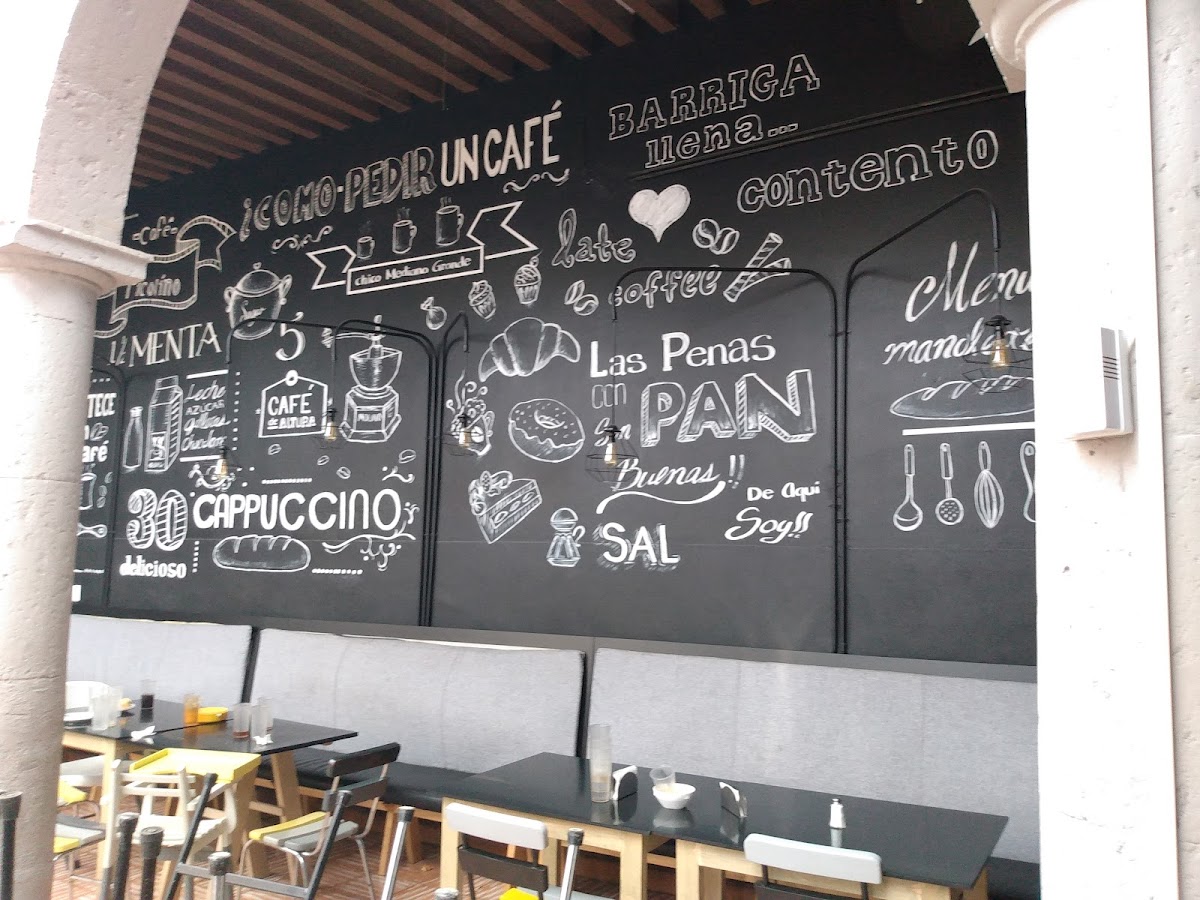 ¿COMO-PEDIR UN CAFÉ
chico Mediano Grande
BARRIGA
llena...
contento
late
coffee
Café
1/2 MENTA
5
Leche
AZUCAR
CAFÉ
DE ALTURA
TECE
30
CAPPUCCINO
delicioso
Las Penas
con
PAN
Son
Buenas!!
De Aqui
Soy!!
SAL
Menu